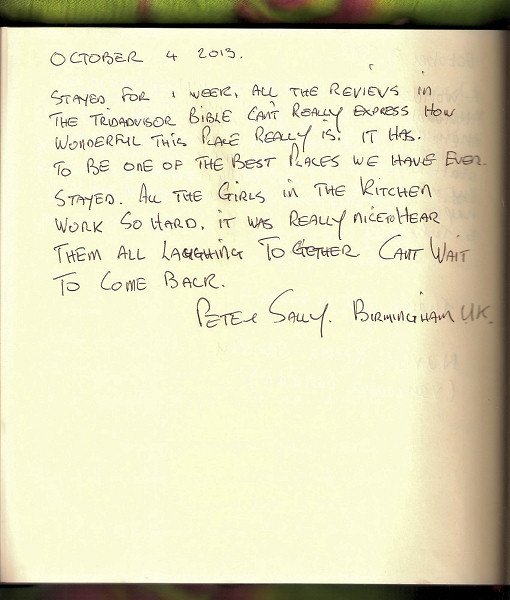 OCTOBER 4 2013.
STAYED FOR 1 WEEK, ALL THE REVIEWS in
THE TRIDADVISOR BIBLE CAN'T REALLY EXPRESS HOW
WONDERFUL THIS PLACE REALLY IS. IT HAS.
TO BE ONE OF THE BEST PLACES WE HAVE EVER
STAYED. ALL THE GIRLS IN THE KITCHEN
WORK SO HARD. IT WAS REALLY NICE TO HEAR
THEM ALL LAUGHING TOGETHER CANT WAIT
TO COME BACK.
PETER SALLY. BIRMINGHAM U.K.